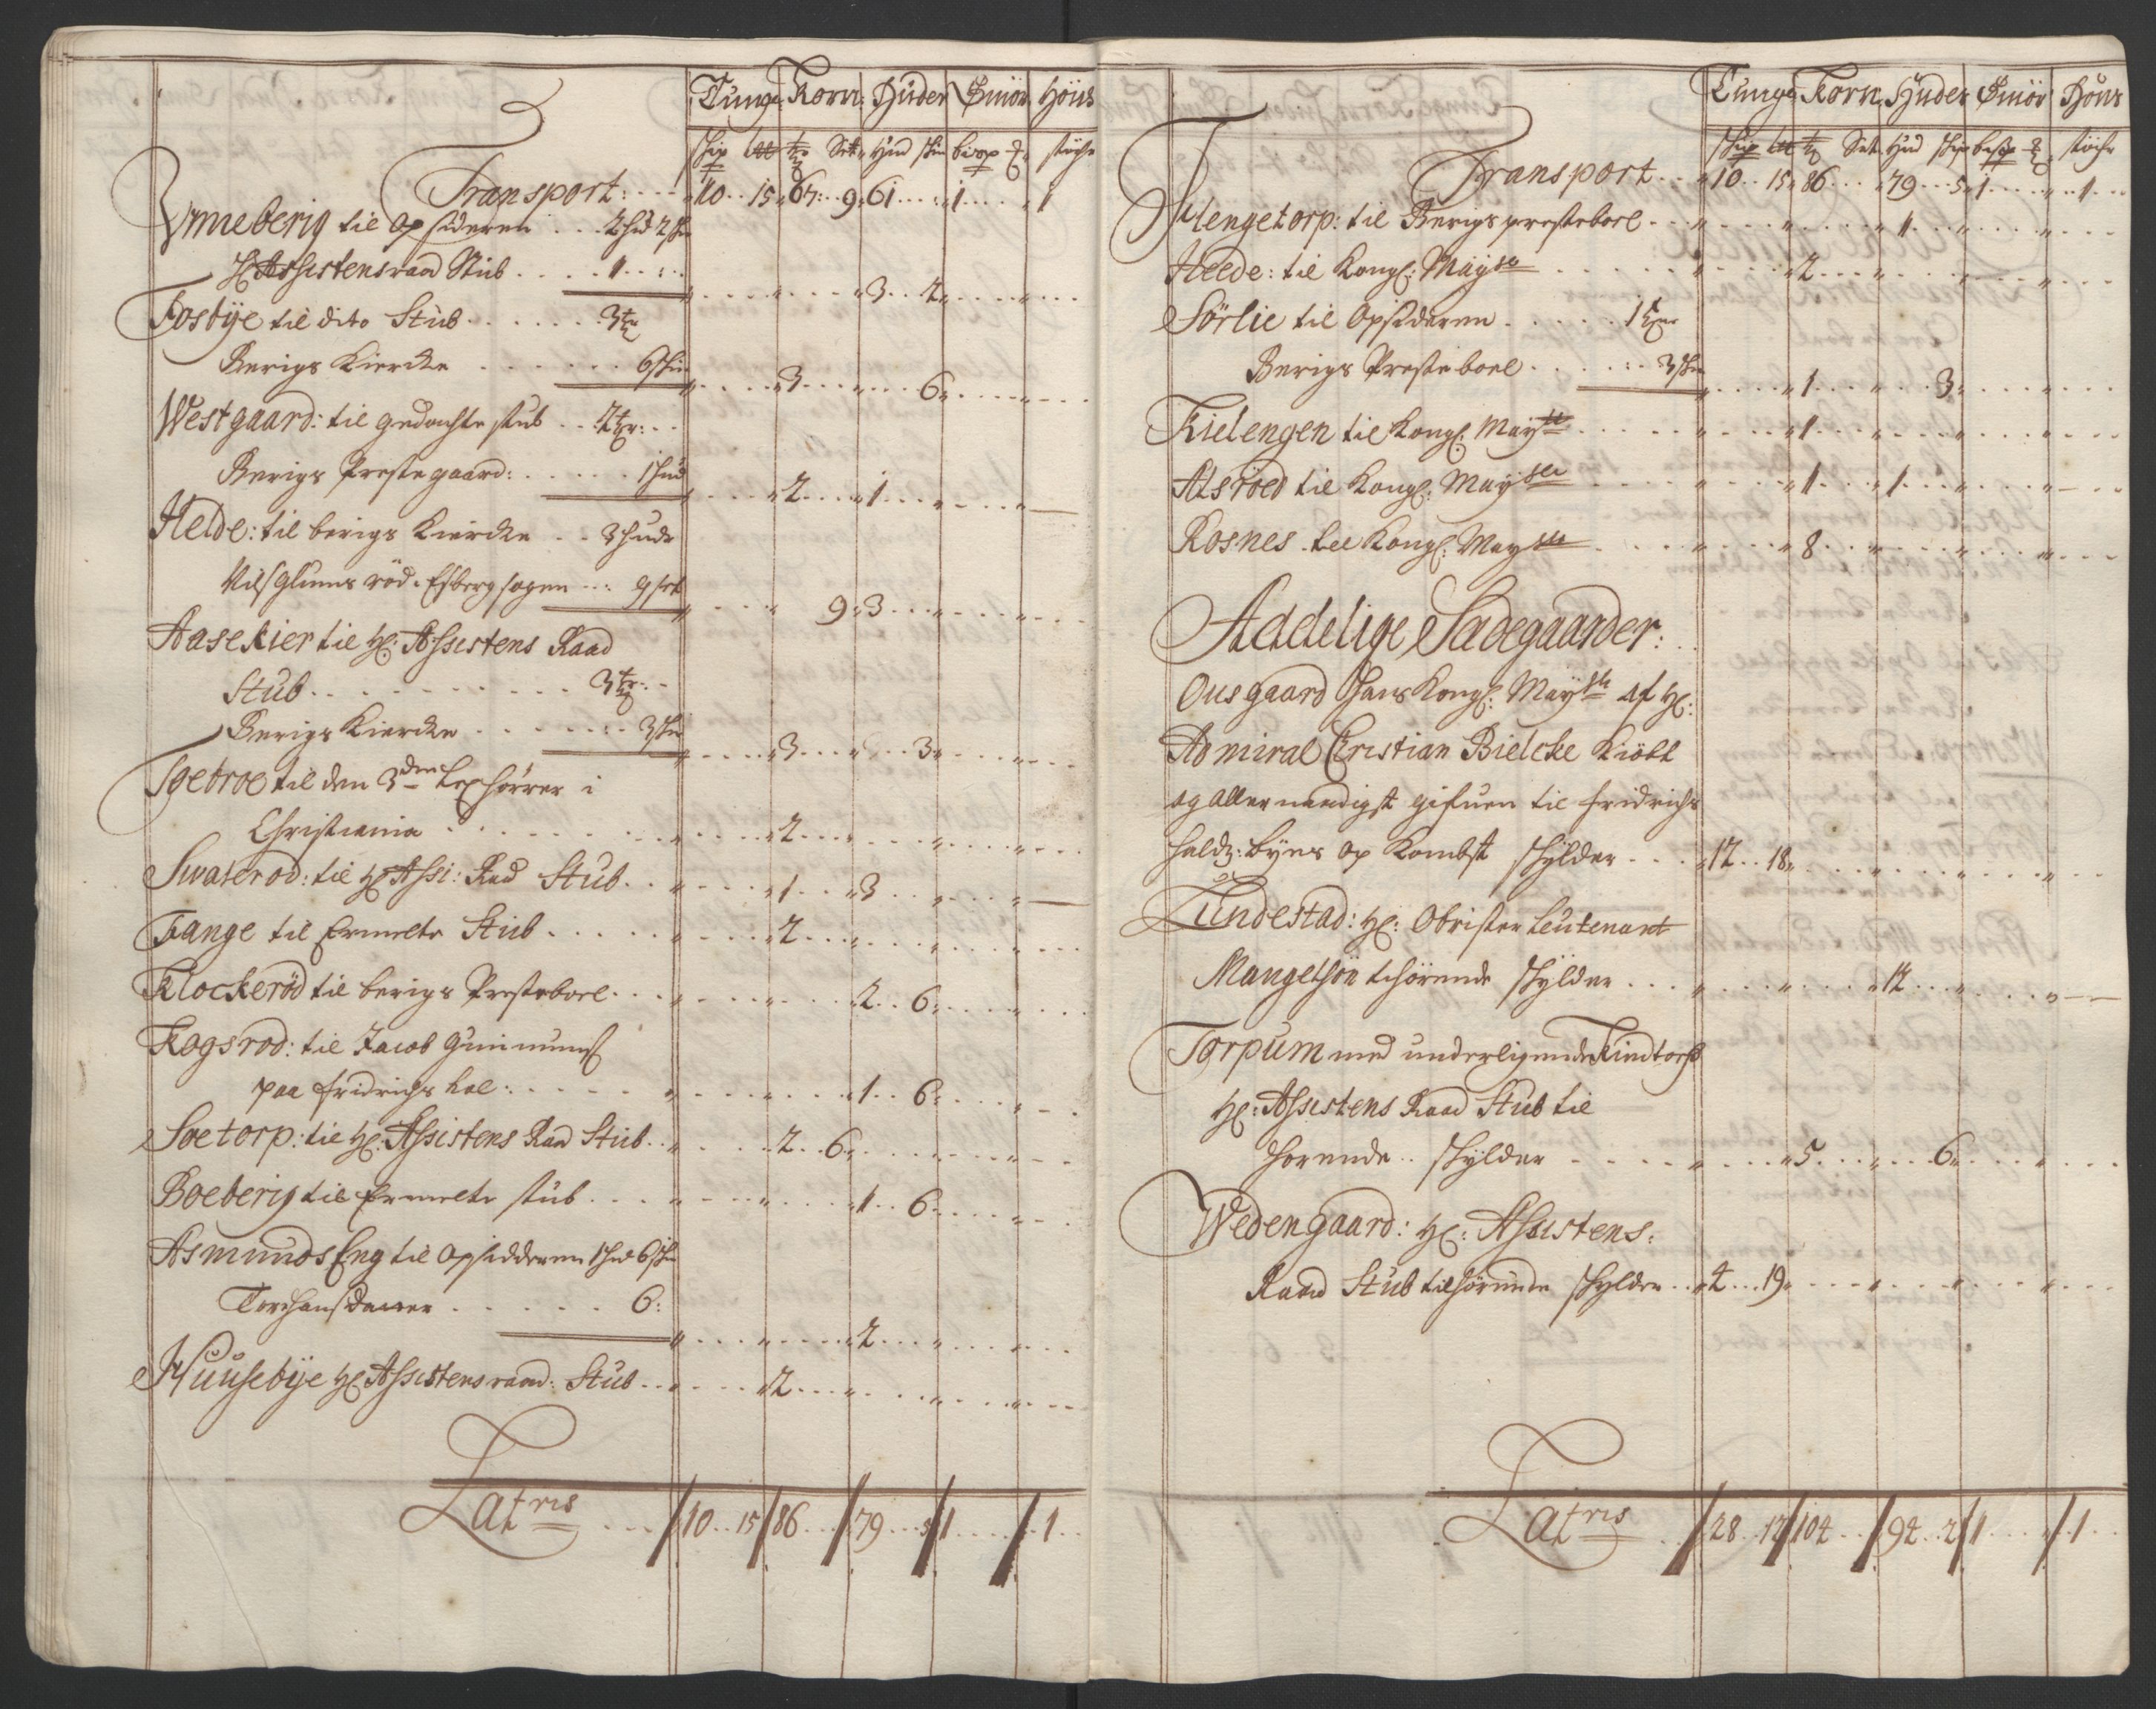 Tunge Korn: Huder Smör Höns
Skip Tr Set Hud skin bispp stöche
Transport: 10 15 67 9 61 1 1
Ymeberig til Opsideren 2 hud 2 skin
H: Assistensraad Stub 1
3 2
Fosbÿe til dito Stub 3 tr
Berigs Kiercke 6 skin
3 6
Westgaard: til gedachte stub 2 tr:
Berigs Prestegaard: 1 hud
2 1
Helde: til berigs Kiercke 3 hude
Nils Glums röd Esberg sogen 9 set
9 3
Aasekier til H: Assistens Raad
Stub 3 tr:
Berigs Kiercke 3 skin
3 3
Igebroe til den 3den Lexhörrer i
Christiania 2
Swalerod: til H Assi: Rad Stub 1 3
Tange til Ermelte Stub 2
Klockeröd til berigs Presteboel 2 6
Kogsrod: til Jacob Gunnums
paa fridrichs hal: 1 6
Soetorp: til H: Assistens Raad Stub 2 6
Boeberig til Ermelte stub 1 6
Asmunds Eng til Opsidderen 1 hud 6 skin
6:
2
Huusebÿe H Assistensraad: Stub 2
Latris 10 15 86 79 5 1 1
Tunge Korn Huder Smör Höns
Skip Tr Set Hud skin stöche
Transport 10 15 86 79 5 1 1
Hengetorp: til Berigs presteboel 1
Heede: til Kongl: Mayst 2
Sörlie til Opsideren 1 tr
Berigs Presteboel 3 skin
1 3
Kielengen til Kongl: Mayst 1
Atsröed til Kongl: Mayst 1 1
Rosnes til Kongl: Mayst 8
Addelige Sadegaarder:
Ous gaard Hans Kongl: Mayst Af H:
Admiral Christian Bielcke Kiöbt
og allernaadigst gifuen til fridrichs
halds: byens op Kombst skÿlder 17 18
Tundestad: H: Obrister Leutenant
Mangelsön tehörende skÿlder 14
Torpum med underligende
H: Assistens Raad Stub til
horende skÿlder 5 6
Wedengaard: H: Assistens:
Raad Stub tilhörende skylder 4 19
Latris 28 12 104 94 2 1 1